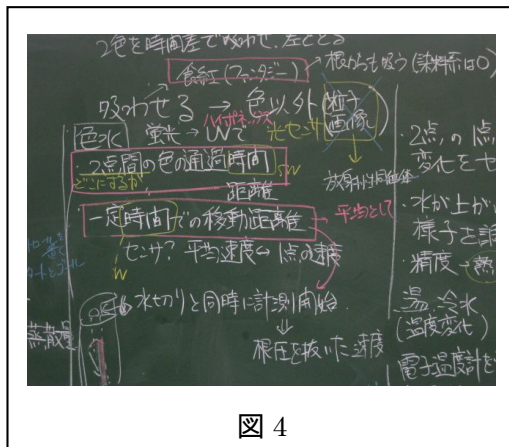 2色を時間差で吸わせ、左ととる
食紅(ファンタジー)
根からも吸う(染料系は○)
吸わせる → 色以外(粒子 画像)
ハイポネックス
色水 蛍光→UVで 光センサ
2点間の色の通過時間
どこにするか
距離
放射性同位体
一定時間での移動距離
平均として
センサ? 平均速度↔1点の速度
水切りと同時に計測開始
根圧を抜いた速度
蒸散量
・2点の1点
変化をセ
・水が上が
様子を
・精度→熱
温・冷水
(温度変化)
電子温度計を
図 4